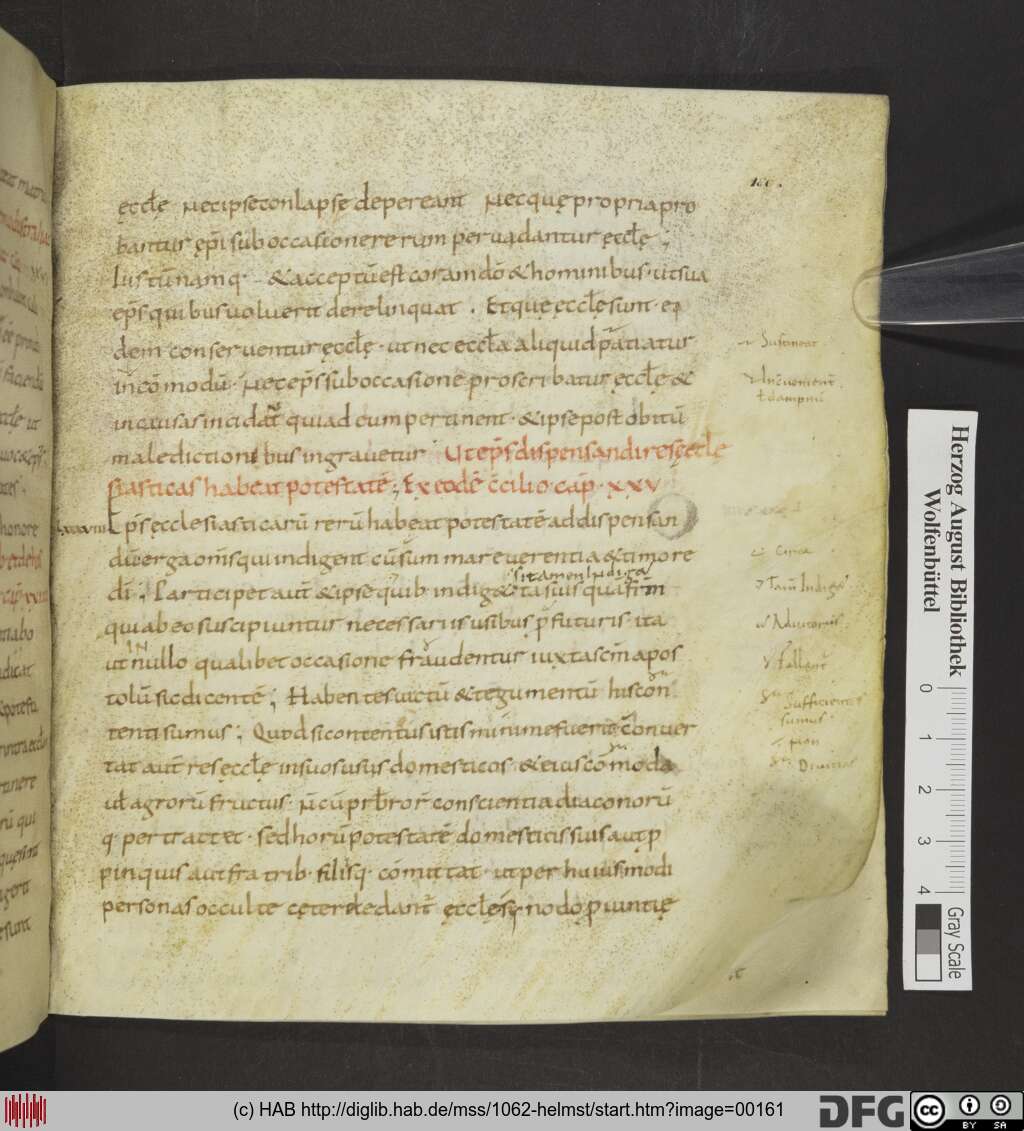 ęccłę nec ipse conlapse depereant Nec quę propria pro
bantur ęp̄i sub occasione rerum peruadantur ęccłę ;
Iustū namq· & acceptū est coram dō & hominibus· ut sua
ep̄s quibus uoluerit derelinquat . Et quę ęccłę sunt· ei
dem conseruentur ęccłę · ut nec eccła aliquid patiatur
incōmodū· Nec ep̄s sub occasione proscribatur ęccłę &
in causas incidat qui ad eum pertinent· & ipse post obitū
maledictionibus ingrauetur Ut ep̄s dispensandi res ęccle
siasticas habeat potestatē ; Ex eodē c̄cilio· cap̄· xxv
ep̄s ęcclesiasticarū rerū habeat potestatē ad dispensan
dū erga om̄s qui indigent cū sum ma reuerentia & timore
si tamen indiget
dī ; Participet aut̄ & ipse quib· indig&
qui ab eo suscipiuntur necessariis usibus p̄futuris· ita
ut in nullo qualibet occasione fraudentur iuxta sc̄m apos
tolū sic dicentē ; Habentes uictū & tegumentū his con
tenti sumus ; Quod si contentus istis minime fuerit conuer
tat aut̄ res ęccłę in suos usus domesticos· & eius com̄oda
uł agrorū fructus· n̄ cū conscientia diaconorū
q· pertractet· sed horū potestatē domesticis suis aut p
pinquis aut fratrib· filiisq· com̄ittat· ut per huiusmodi
personas occulte cęterę ledant̄ ęccłę
Sustineat
ł dampnū
Circa
Tam̄ Indiget
Adiutoriis
Fallant̄
Sufficientes
sumus
Diuitias
Herzog August Bibliothek
Wolfenbüttel
0 1 2 3 4
Gray Scale
(c) HAB http://diglib.hab.de/mss/1062-helmst/start.htm?image=00161
DFG
cc BY SA